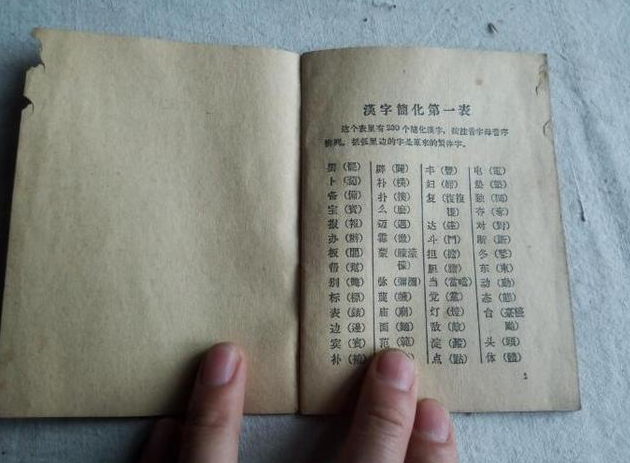 漢字簡化第一表
这个表里有230个簡化漢字，按注音字母音序
排列。括弧里边的字是原来的繁体字。
罢(罷)
卜(蔔)
备(備)
宝(寶)
报(報)
办(辦)
板(闆)
帮(幫)
别(彆)
标(標)
表(錶)
边(邊)
宾(賓)
补(補)
辟(闢)
朴(樸)
扑(撲)
么(麽)
迈(邁)
霉(黴)
蒙(矇濛
懞)
弥(彌瀰)
蔑(衊)
庙(廟)
面(麵)
范(範)
丰(豐)
妇(婦)
复(復複
覆)
达(達)
斗(鬥)
担(擔)
胆(膽)
当(當噹)
党(黨)
灯(燈)
敌(敵)
淀(澱)
点(點)
电(電)
垫(墊)
独(獨)
夺(奪)
对(對)
断(斷)
冬(鼕)
东(東)
动(動)
态(態)
台(臺檯
颱)
头(頭)
体(體)
1